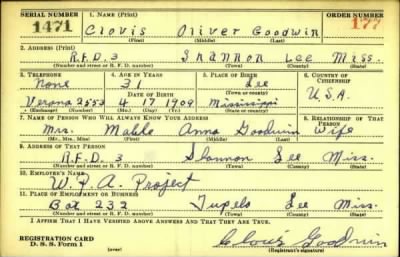 SERIAL NUMBER 1. NAME (Print) ORDER NUMBER
1471 Clovis Oliver Goodwin 177
(First) (Middle) (Last)
2. ADDRESS (Print)
R.F.D. 3 Shannon Lee Miss.
(Number and street or R. F. D. number) (Town) (County) (State)
3. TELEPHONE 4. AGE IN YEARS 5. PLACE OF BIRTH 6. COUNTRY OF CITIZENSHIP
None 31 Lee
DATE OF BIRTH (Town or county)
Verona 2553 4 17 1909 Mississippi U.S.A.
(Exchange) (Number) (Mo.) (Day) (Yr.) (State or country)
7. NAME OF PERSON WHO WILL ALWAYS KNOW YOUR ADDRESS 8. RELATIONSHIP OF THAT PERSON
Mrs. Anna Goodwin Wife
(Mr., Mrs., Miss) (First) (Middle) (Last)
9. ADDRESS OF THAT PERSON
R.F.D. 3 Shannon Lee Miss.
(Number and street or R. F. D. number) (Town) (County) (State)
10. EMPLOYER'S NAME
W.P.A. Project
11. PLACE OF EMPLOYMENT OR BUSINESS
Box 232 Tupelo Lee Miss.
(Number and street or R. F. D. number) (Town) (County) (State)
I AFFIRM THAT I HAVE VERIFIED ABOVE ANSWERS AND THAT THEY ARE TRUE.
REGISTRATION CARD
D. S. S. Form 1 (over) Clovis Goodwin
(Registrant's signature)